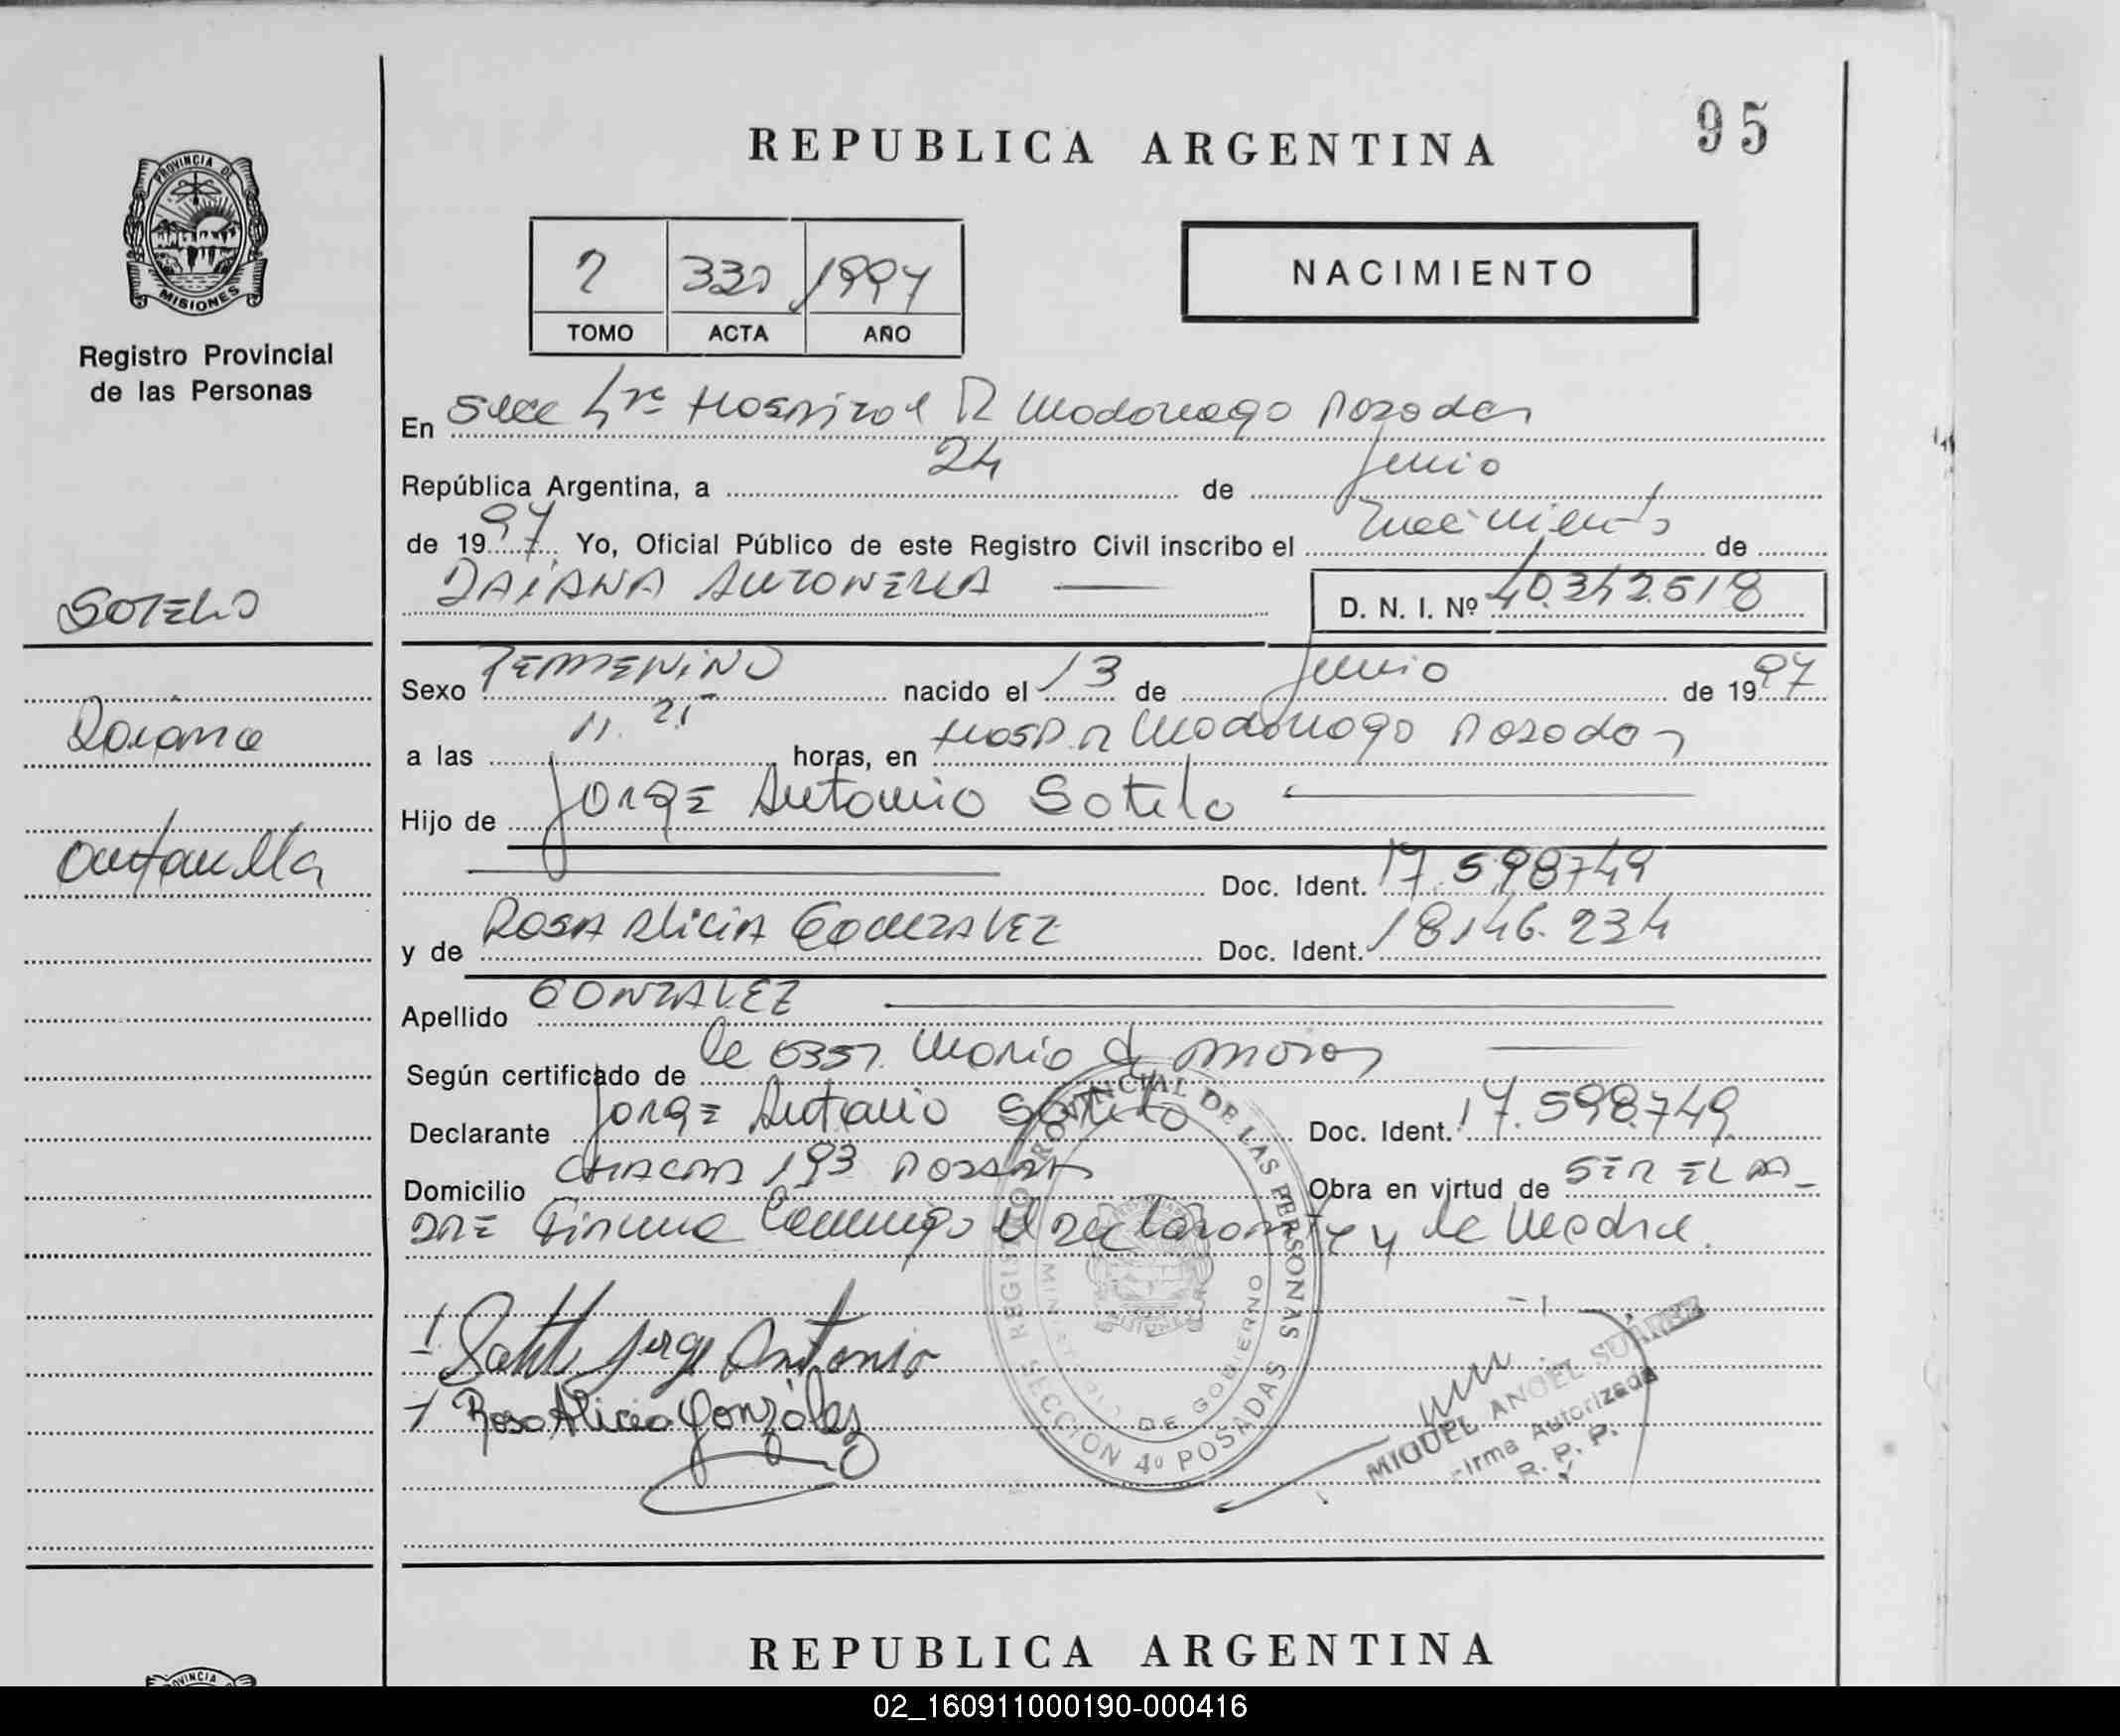 REPUBLICA ARGENTINA
95
PROVINCIA DE MISIONES
Registro Provincial
de las Personas
NACIMIENTO
1997
TOMO ACTA AÑO
En Secc Hospital R Madariaga Posadas
República Argentina, a 24 de Junio
de 1997 Yo, Oficial Público de este Registro Civil inscribo el Nacimiento de
DAIANA ANTONELLA
D. N. I. Nº 40.342.518
SOTELO
Daiana
Antonella
Sexo FEMENINO nacido el 13 de Junio de 1997
a las 11. horas, en Hosp. R Madariaga Posadas
Hijo de Jorge Antonio Sotelo
Doc. Ident. 17.598749
y de ROSA Alicia GONZALEZ Doc. Ident. 18146.234
Apellido GONZALEZ
Según certificado de la Obst. Mario
Declarante Jorge Antonio Sotelo Doc. Ident. 17.598.749
Domicilio CHACRA 193 POSADAS Obra en virtud de SER EL PA-
DRE Firma Conmigo el declarante y la Madre.
Sotelo Jorge Antonio
Rosa Alicia González
REGISTRO PROVINCIAL DE LAS PERSONAS
MINISTERIO DE GOBIERNO
SECCION 4º POSADAS
MIGUEL ANGEL SUAREZ
Firma Autorizada
R. P. P.
REPUBLICA ARGENTINA
02_160911000190-000416